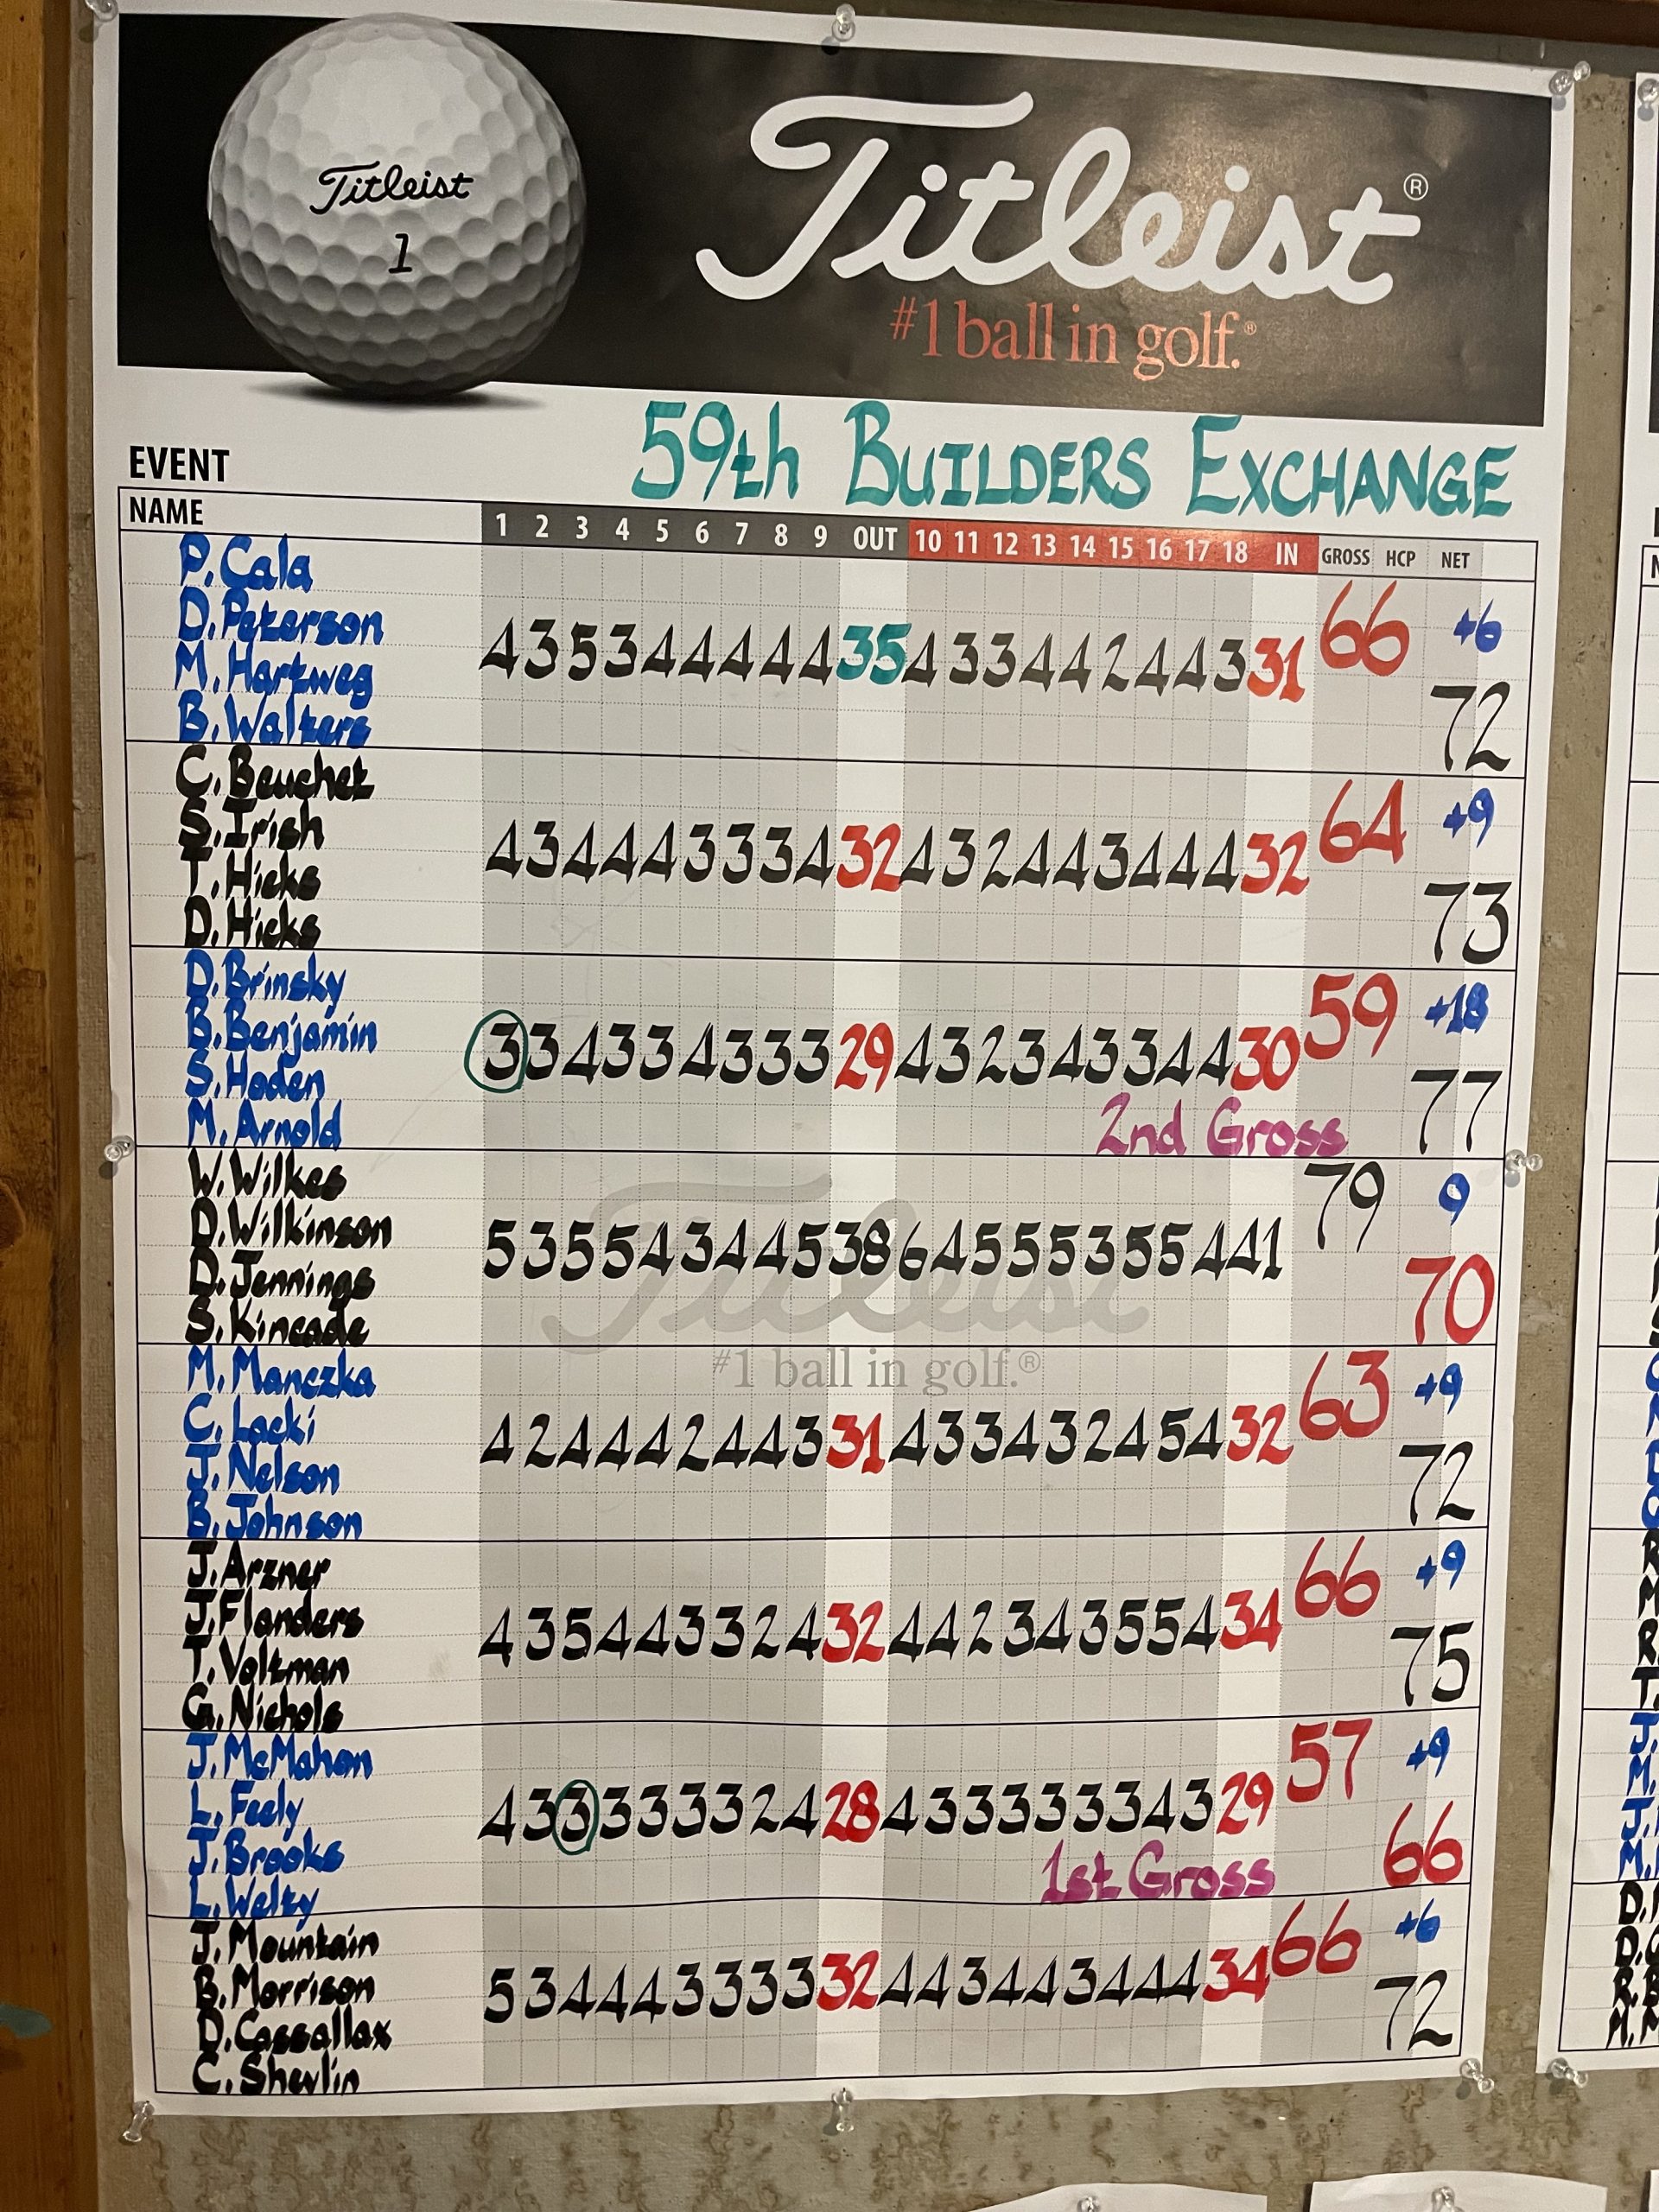 Titleist
1
Titleist®
#1 ball in golf.®
EVENT 59th BUILDERS EXCHANGE
NAME 1 2 3 4 5 6 7 8 9 OUT 10 11 12 13 14 15 16 17 18 IN GROSS HCP NET
P. Cala
D. Peterson
M. Hartweg
B. Walters
4 3 5 3 4 4 4 4 4 35 4 3 3 4 4 2 4 4 3 31 66 +6
72
C. Beuchet
S. Irish
T. Hicks
D. Hicks
4 3 4 4 4 3 3 3 4 32 4 3 2 4 4 3 4 4 4 32 64 +9
73
D. Brinsky
B. Benjamin
S. Hoden
M. Arnold
3 3 4 3 3 4 3 3 3 29 4 3 2 3 4 3 3 4 4 30 59 +18
77
2nd Gross
W. Wilkes
D. Wilkinson
D. Jennings
S. Kincade
5 3 5 5 4 3 4 4 5 38 6 4 5 5 5 3 5 5 4 41 79 9
70
Titleist
#1 ball in golf.®
M. Manczka
C. Locki
J. Nelson
B. Johnson
4 2 4 4 4 2 4 4 3 31 4 3 3 4 3 2 4 5 4 32 63 +9
72
J. Arzner
J. Flanders
T. Voltman
G. Nichols
4 3 5 4 4 3 3 2 4 32 4 4 2 3 4 3 5 5 4 34 66 +9
75
J. McMahon
L. Feely
J. Brooks
L. Welty
4 3 3 3 3 3 3 2 4 28 4 3 3 3 3 3 3 4 3 29 57 +9
66
1st Gross
J. Mountain
B. Morrison
D. Cassallax
C. Shevlin
5 3 4 4 4 3 3 3 3 32 4 4 3 4 4 3 4 4 4 34 66 +6
72